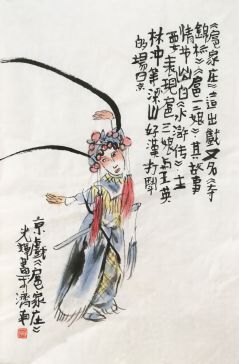 《扈家庄》這出戏又名《夺
锦标》《扈三娘》其故事
情节出自《水浒传》主
要表现扈三娘与王英
林冲等梁山好汉打斗
的場景
京戏《扈家庄》
于濟南